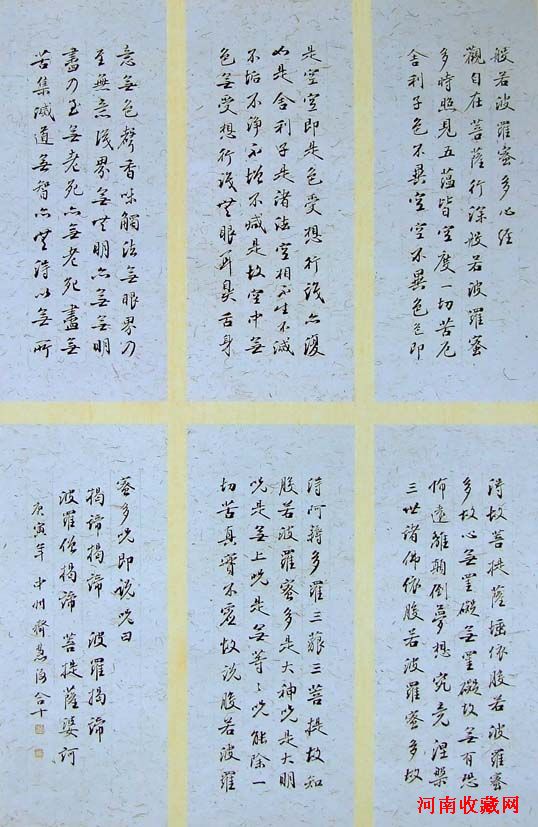 般若波羅蜜多心經
觀自在菩薩行深般若波羅蜜
多時照見五蘊皆空度一切苦厄
舍利子色不異空空不異色色即
是空空即是色受想行識亦復
如是舍利子是諸法空相不生不滅
不垢不淨不增不減是故空中無
色無受想行識無眼耳鼻舌身
意無色聲香味觸法無眼界乃
至無意識界無無明亦無無明
盡乃至無老死亦無老死盡無
苦集滅道無智亦無得以無所
得故菩提薩埵依般若波羅蜜
多故心無罣礙無罣礙故無有恐
怖遠離顛倒夢想究竟涅槃
三世諸佛依般若波羅蜜多故
得阿耨多羅三藐三菩提故知
般若波羅蜜多是大神咒是大明
咒是無上咒是無等々咒能除一
切苦真實不虛故說般若波羅
蜜多咒即說咒曰
揭諦揭諦 波羅揭諦
波羅僧揭諦 菩提薩婆訶
庚寅年 中州 合十
河南收藏网